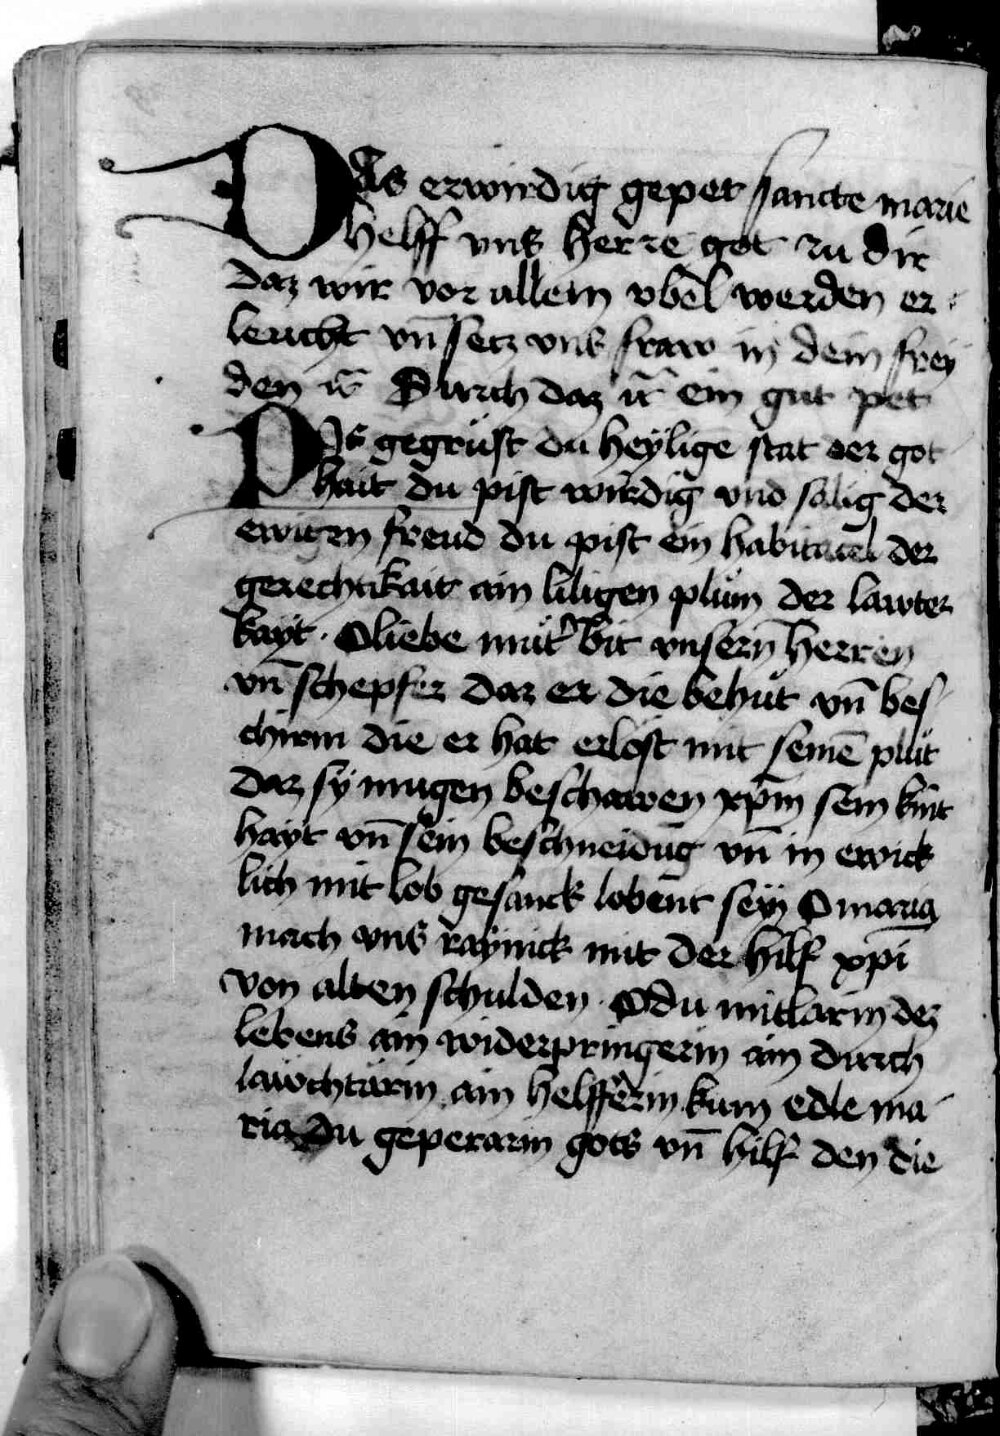 Das erwirdig gepet sancte marie
helff vns herre got zu dir
daz wir vor allem vbel werden er
leucht vn̄ secz vns fraw in dein frey
den Durch daz ein gut pet
Pis gegrüst du heylige stat der got
hait du pist wirdig vnd sälig der
ewigen freud du pist ein habitacel der
gerechtikait ain liligen plům der lawter
kayt · O liebe můt̾ bit vnsern̄ herren
vn̄ schepfer daz er die behůt vn̄ bes
chirm die er hat erlöst mit seinē plůt
daz sy mugen beschawen xp̄m sein kint
hayt vn̄ sein beschneidūg vn̄ in ewick
lich mit lob gesanck lobent sey O maria
mach vns raynick mit der hilf xp̄i
von alten schulden · O du mitlarin dez
lebens ain widerpringerin ain durch
läwchtärin ain helfferin kum edle ma
ria du geperarin gots vn̄ hilf den die